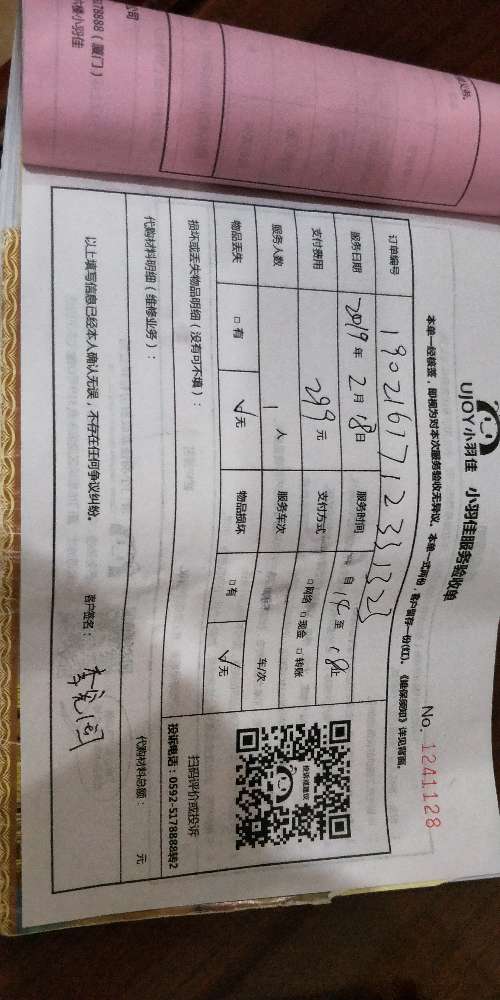 公司
78888（厦门）
小羽佳
UJOY小羽佳 小羽佳服务验收单
No. 1241128
本单一经核签，即视为对本次服务验收无异议。本单一式两份，客户留存一份(红)。《赔保须知》详见背面。
订单编号 190216171233323
服务日期 2019年2月18日 服务时间 自14至18止
支付费用 299元 支付方式 □网络 □现金 □转账
服务人数 1人 服务车次 车/次
物品丢失 □有 √无 物品损坏 □有 √无
损坏或丢失物品明细（没有可不填）：
代购材料明细（维修业务）：
代购材料总额： 元
以上填写信息已经本人确认无误，不存在任何争议纠纷。
客户签名：
投诉或建议
扫码评价或投诉
投诉电话：0592-5178888转2